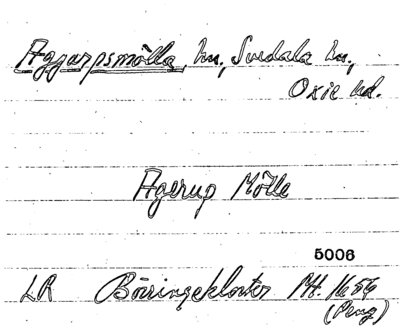 Aggarpsmölla, hn, Svedala hn,
Oxie hd.
Agerup Mölle
5006
LR Börringekloster Mt. 1654
(Peng)